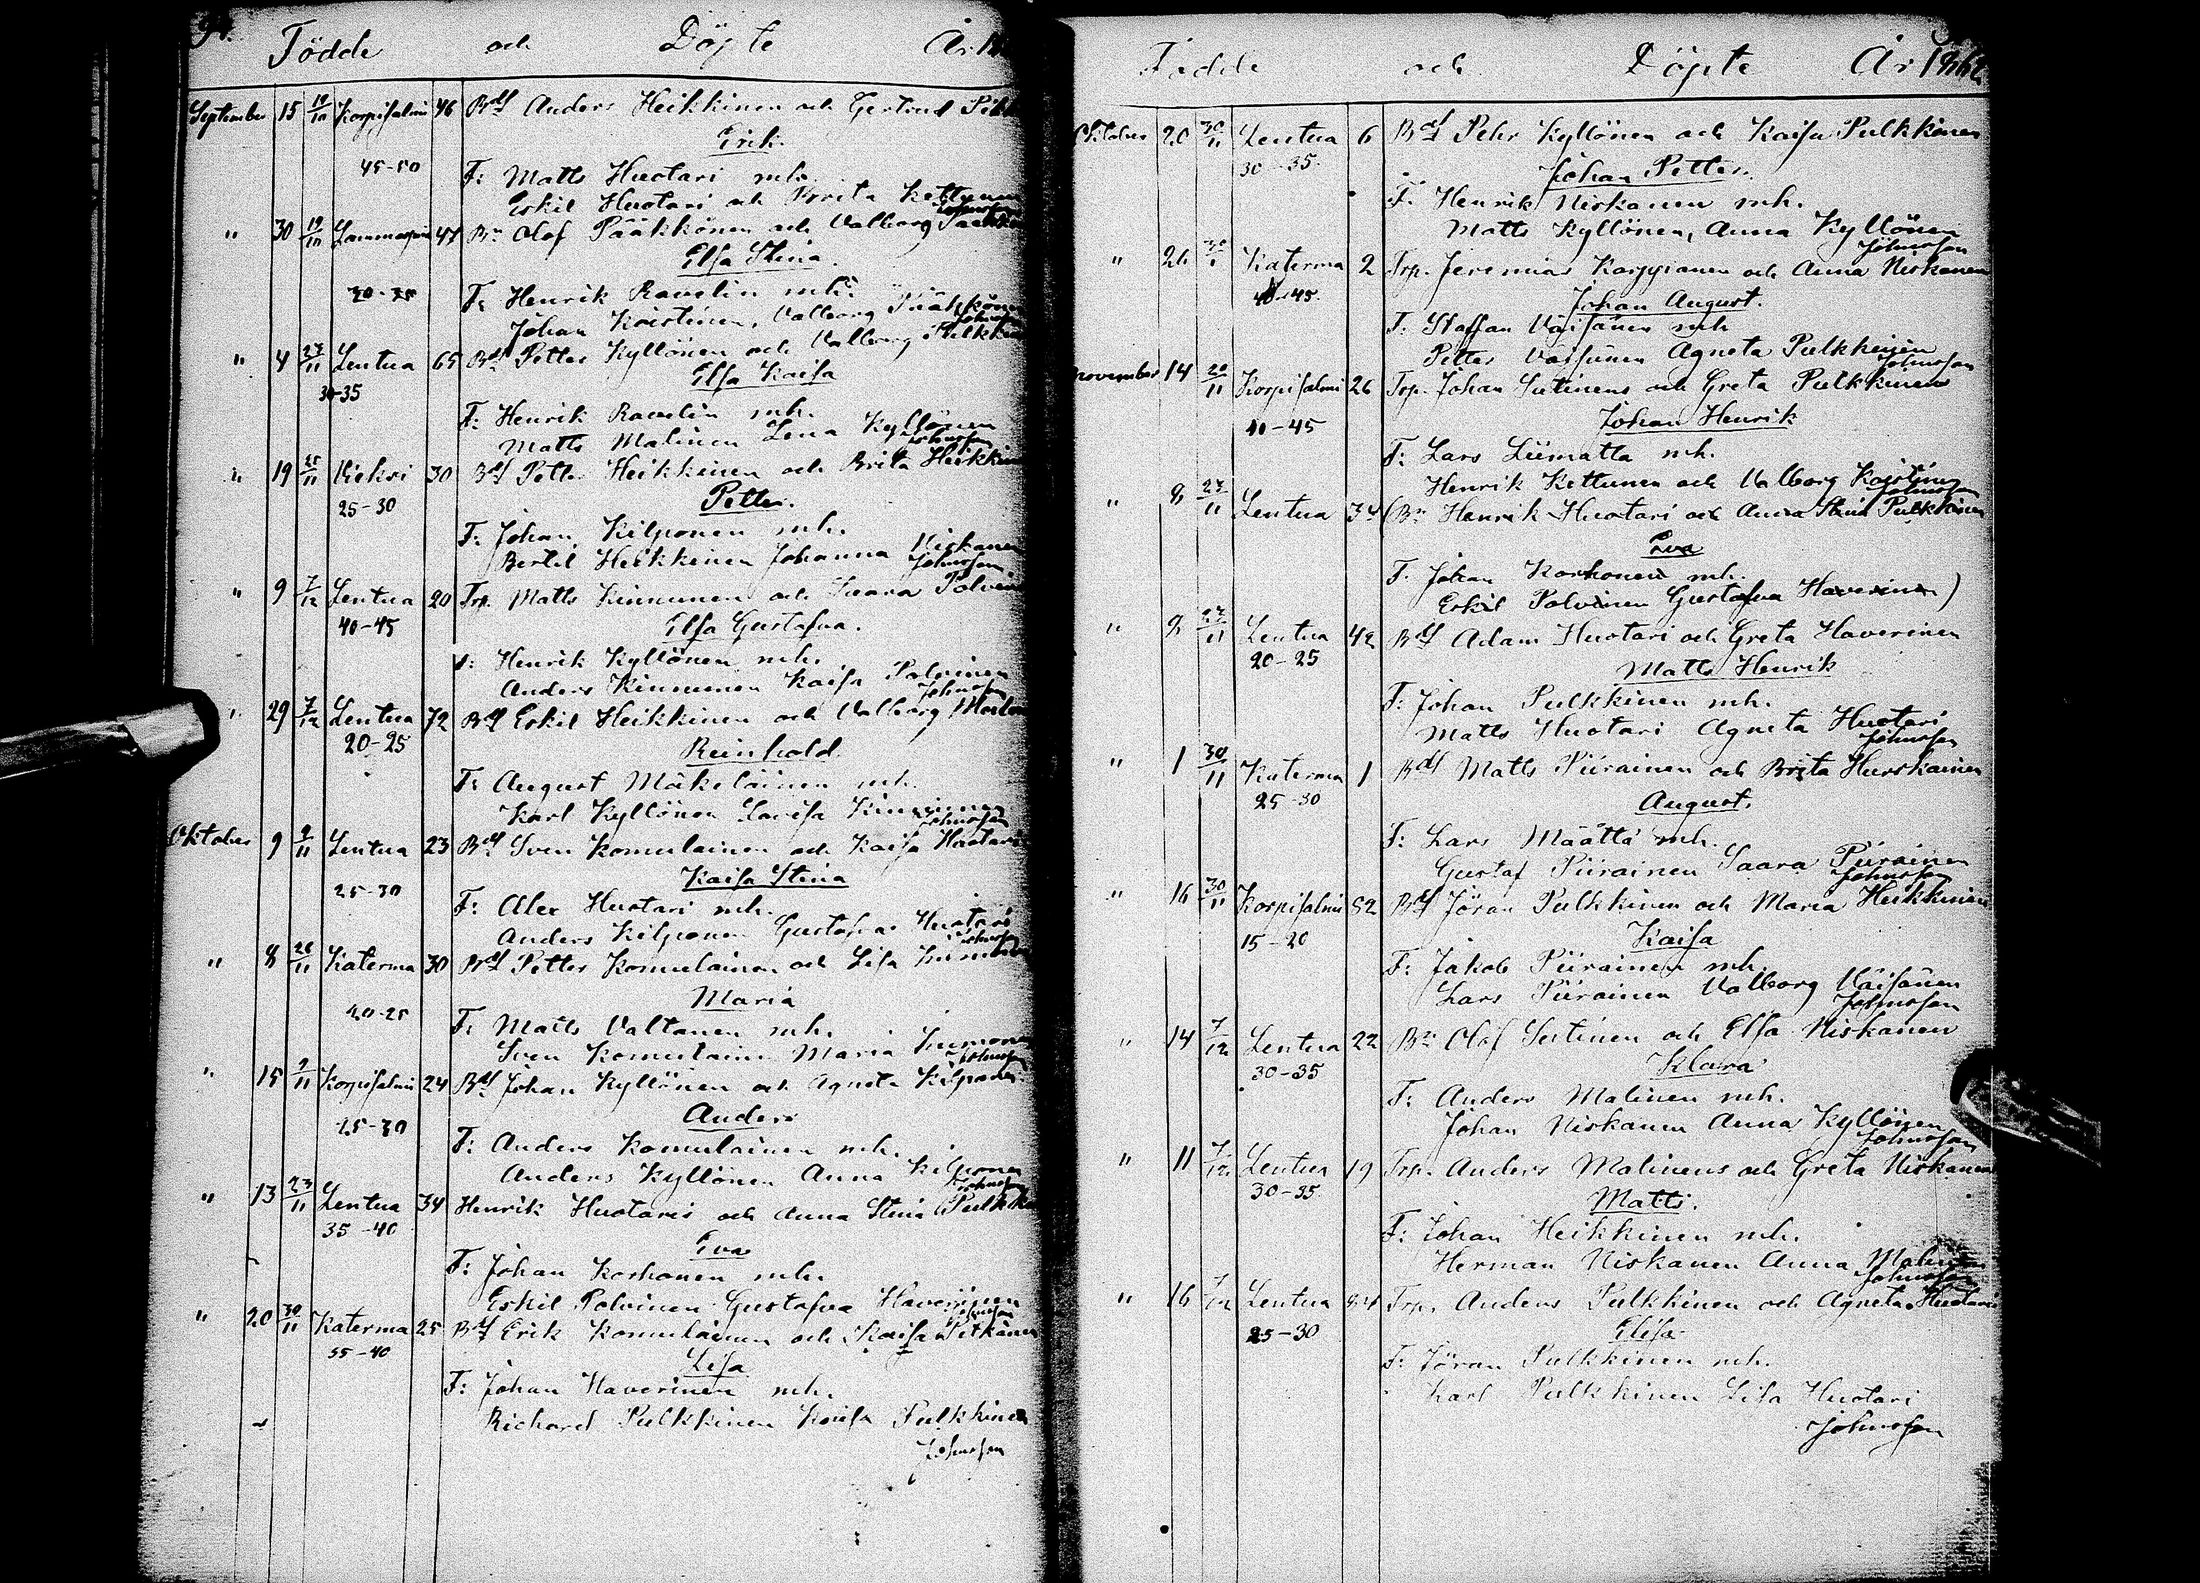 94.
Födde och Döpte År 18
September 15 19/10 Korpisalmi 46 Bdf Anders Heikkinen och Gertrud
Erik.
45-50
F: Matts Huotari mh.
Eskil Huotari och Brita Kettunen
Johnsson
" 30 19/10 Lammasperä 47 Bn Olof Pääkkönen och Valborg Pääkkö
Elsa Stina.
F: Henrik Ravelin mh.
Johan Koistinen, Valborg Pääkkönen
Johnsson
" 4 23/11 Lentua 65 Bdf Petter Kyllönen och Valborg Pulkki
Elsa Kaisa
30-35
F: Henrik Ravelin mh.
Matts Malinen Lena Kyllönen
Johnsson
" 19 25/11 Kiekri 30 Bdf Petter Heikkinen och Brita Heikkin
25-30 Petter.
F: Johan Kilponen mh.
Bertil Heikkinen Johanna Niskanen
Johnsson
" 9 7/12 Lentua 20 Trp. Matts Kinnunen och Saara Polvin
40-45 Elsa Gustafva.
F: Henrik Kyllönen mh.
Anders Kinnunen Kaisa Polvinen
Johnsson
" 29 7/12 Lentua 72 Bdf Eskil Heikkinen och Valborg
20-25 Reinhold
F: August Mäkeläinen mh.
Karl Kyllönen Lovisa Kinnunen
Johnsson
Oktober 9 9/11 Lentua 23 Bdf Sven Komulainen och Kaisa Huotari
Kaisa Stina
25-30
F: Alex Huotari mh.
Anders Kilponen Gustafva Huotari
Johnsson
" 8 26/11 Katerma 30 Bdf Petter Komulainen och Lisa
Maria
20-25
F: Matts Valtanen mh.
Sven Komulainen Maria
Johnsson
" 15 9/11 Korpisalmi 24 Bdf Johan Kyllönen och Agneta Kilponen
Anders
25-30
F: Anders Komulainen mh.
Anders Kyllönen Anna Kilponen
Johnsson
" 13 23/11 Lentua 34 Henrik Huotaris och Anna Stina Pulkki
35-40 Eva
F: Johan Korhonen mh.
Eskil Polvinen Gustafva Haverinen
Johnsson
" 20 30/11 Katerma 25 Bdf Erik Komulainen och Kaisa Pitkänen
35-40 Lisa
F: Johan Haverinen mh.
Richard Pulkkinen Kaisa Pulkkinen
Johnsson
Födde och Döpte År 1862
Oktober 20 30/11 Lentua 6 Bdf Pehr Kyllönen och Kaisa Pulkkinen
30-35 Johan Petter.
F: Henrik Niskanen mh.
Matts Kyllönen, Anna Kyllönen
Johnsson
" 26 Katerma 2 Trp. Jeremias Karppinen och Anna Niskanen
40-45. Johan August.
F: Staffan Väisänen mh
Petter Väisänen Agneta Pulkkinen
Johnsson
November 14 22/11 Korpisalmi 26 Trp. Johan Sutinens och Greta Pulkkinens
Johan Henrik
40-45
F: Lars Liimatta mh.
Henrik Kettunen och Valborg Koistinen
Johnsson
" 8 23/11 Lentua 34 (Bn Henrik Huotari och Anna Stina Pulkkinen
Eva
F: Johan Korhonen mh.
Eskil Polvinen Gustafva Haverinen)
" 9 23/11 Lentua 42 Bdf Adam Huotari och Greta Haverinen
20-25 Matts Henrik
F: Johan Pulkkinen mh.
Matts Huotari Agneta Huotari
Johnsson
" 1 30/11 Katerma 1 Bdf Matts Piirainen och Brita Hurskainen
25-30 August.
F: Lars Määttä mh.
Gustaf Piirainen Saara Piirainen
Johnsson
" 16 30/11 Korpisalmi 52 Bdf Jöran Pulkkinen och Maria Heikkinen
15-20 Kaisa
F: Jakob Piirainen mh.
Lars Piirainen Valborg Väisänen
Johnsson
" 14 7/12 Lentua 22 Bn Olof Sutinen och Elsa Niskanen
30-35 Klara
F: Anders Malinen mh.
Johan Niskanen Anna Kyllönen
Johnsson
" 11 7/12 Lentua 19 Trp. Anders Malinens och Greta Niskanen
30-35 Matts.
F: Johan Heikkinen mh.
Herman Niskanen Anna Malinen
Johnsson
" 16 7/12 Lentua Trp. Anders Pulkkinen och Agneta Huotari
25-30 Elisa
F: Jöran Pulkkinen mh.
Karl Pulkkinen Lisa Huotari
Johnsson